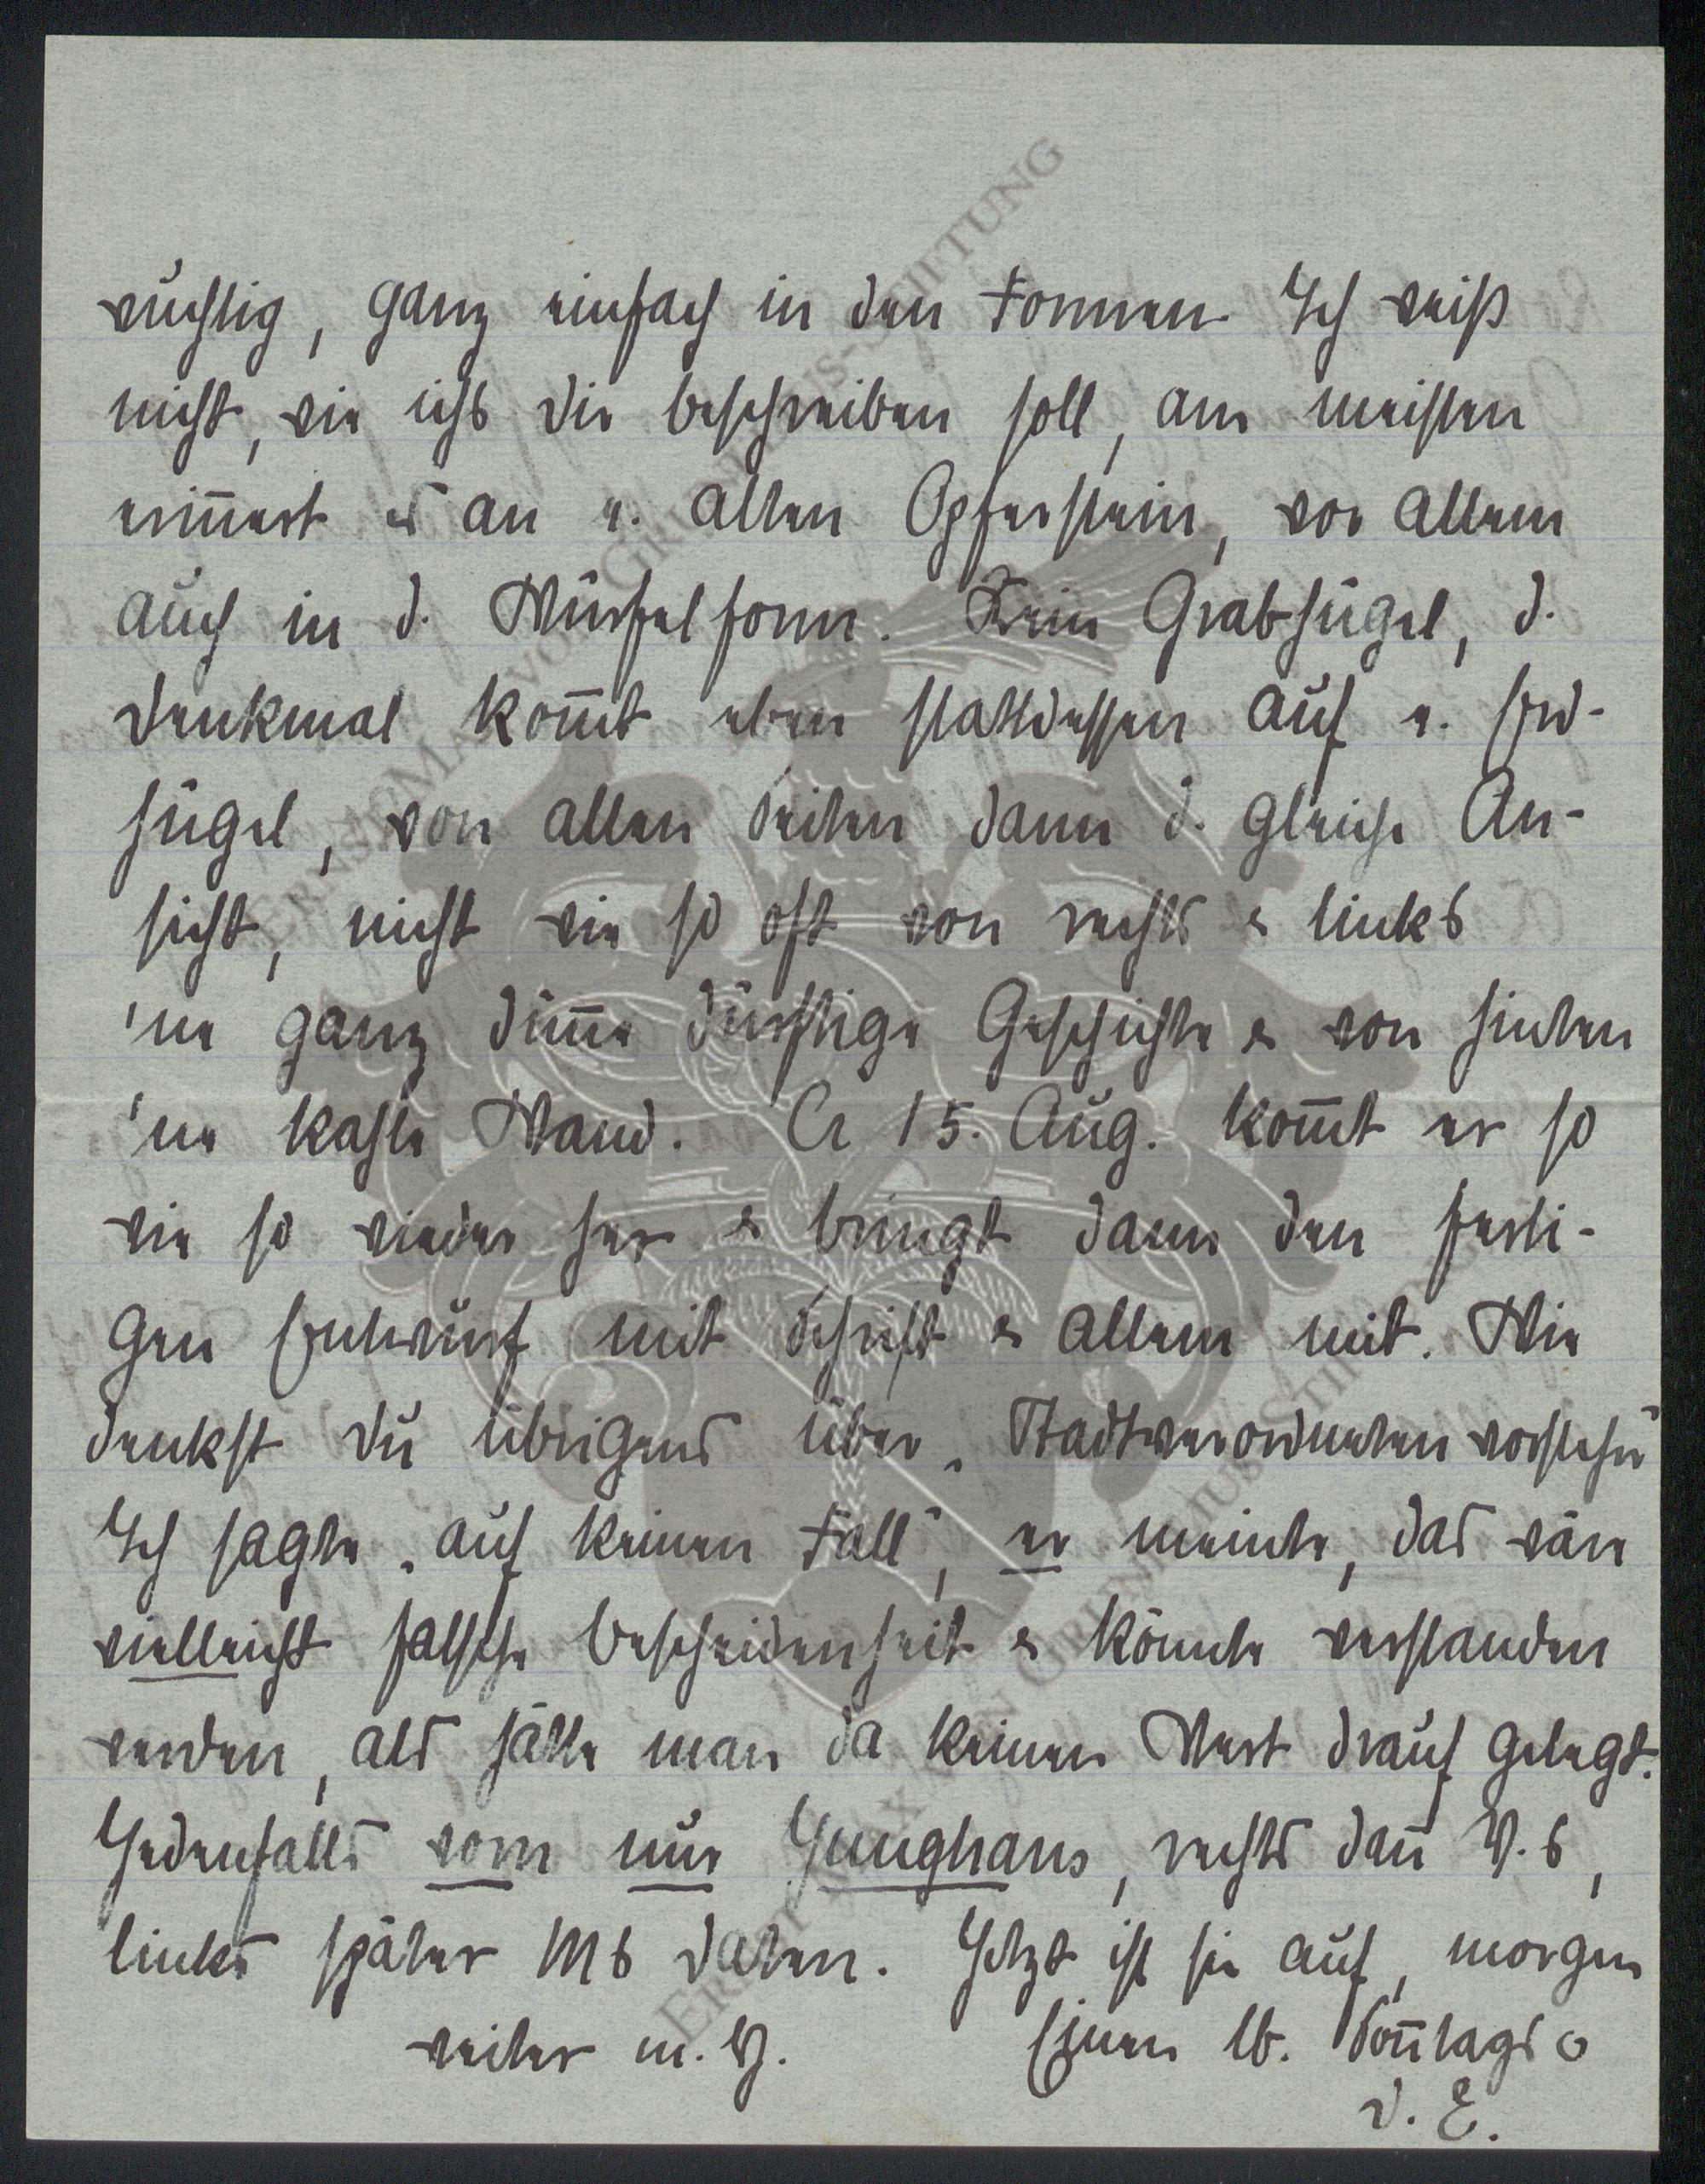 wuchtig, ganz einfach in den Formen. Ich weiß
nicht, wie ichs dir beschreiben soll, am meisten
erinn̄ert es an e. alten Opferstein, vor allem
auch in d. Würfelform. Kein Grabhügel, d.
Denkmal kom̄t eben stattdessen auf e. Erd-
hügel, von allen Seiten dann d. gleiche An-
sicht, nicht wie so oft von rechts & links
'ne ganz dün̄e dürftige Geschichte & von hinten
'ne kahle Wand. Ca 15. Aug. kom̄t er so
wie so wieder her & bringt dann den ferti-
gen Entwurf mit Schrift & allem mit. Wie
denkst du übrigens über „Stadtverordnetenvorsteher"
Ich sagte „auf keinen Fall", er meinte, das wäre
vielleicht falsche Bescheidenheit & könnte verstanden
werden, als hätte man da keinen Wert drauf gelegt.
Jedenfalls vorn nur Junghans, rechts dan̄ V.s,
links später Ms Daten. Jetzt ist sie auf, morgen
weiter m. H.
Einen lb. Son̄tags
d. E.
ERNST MAX VON GRUNELIUS-STIFTUNG